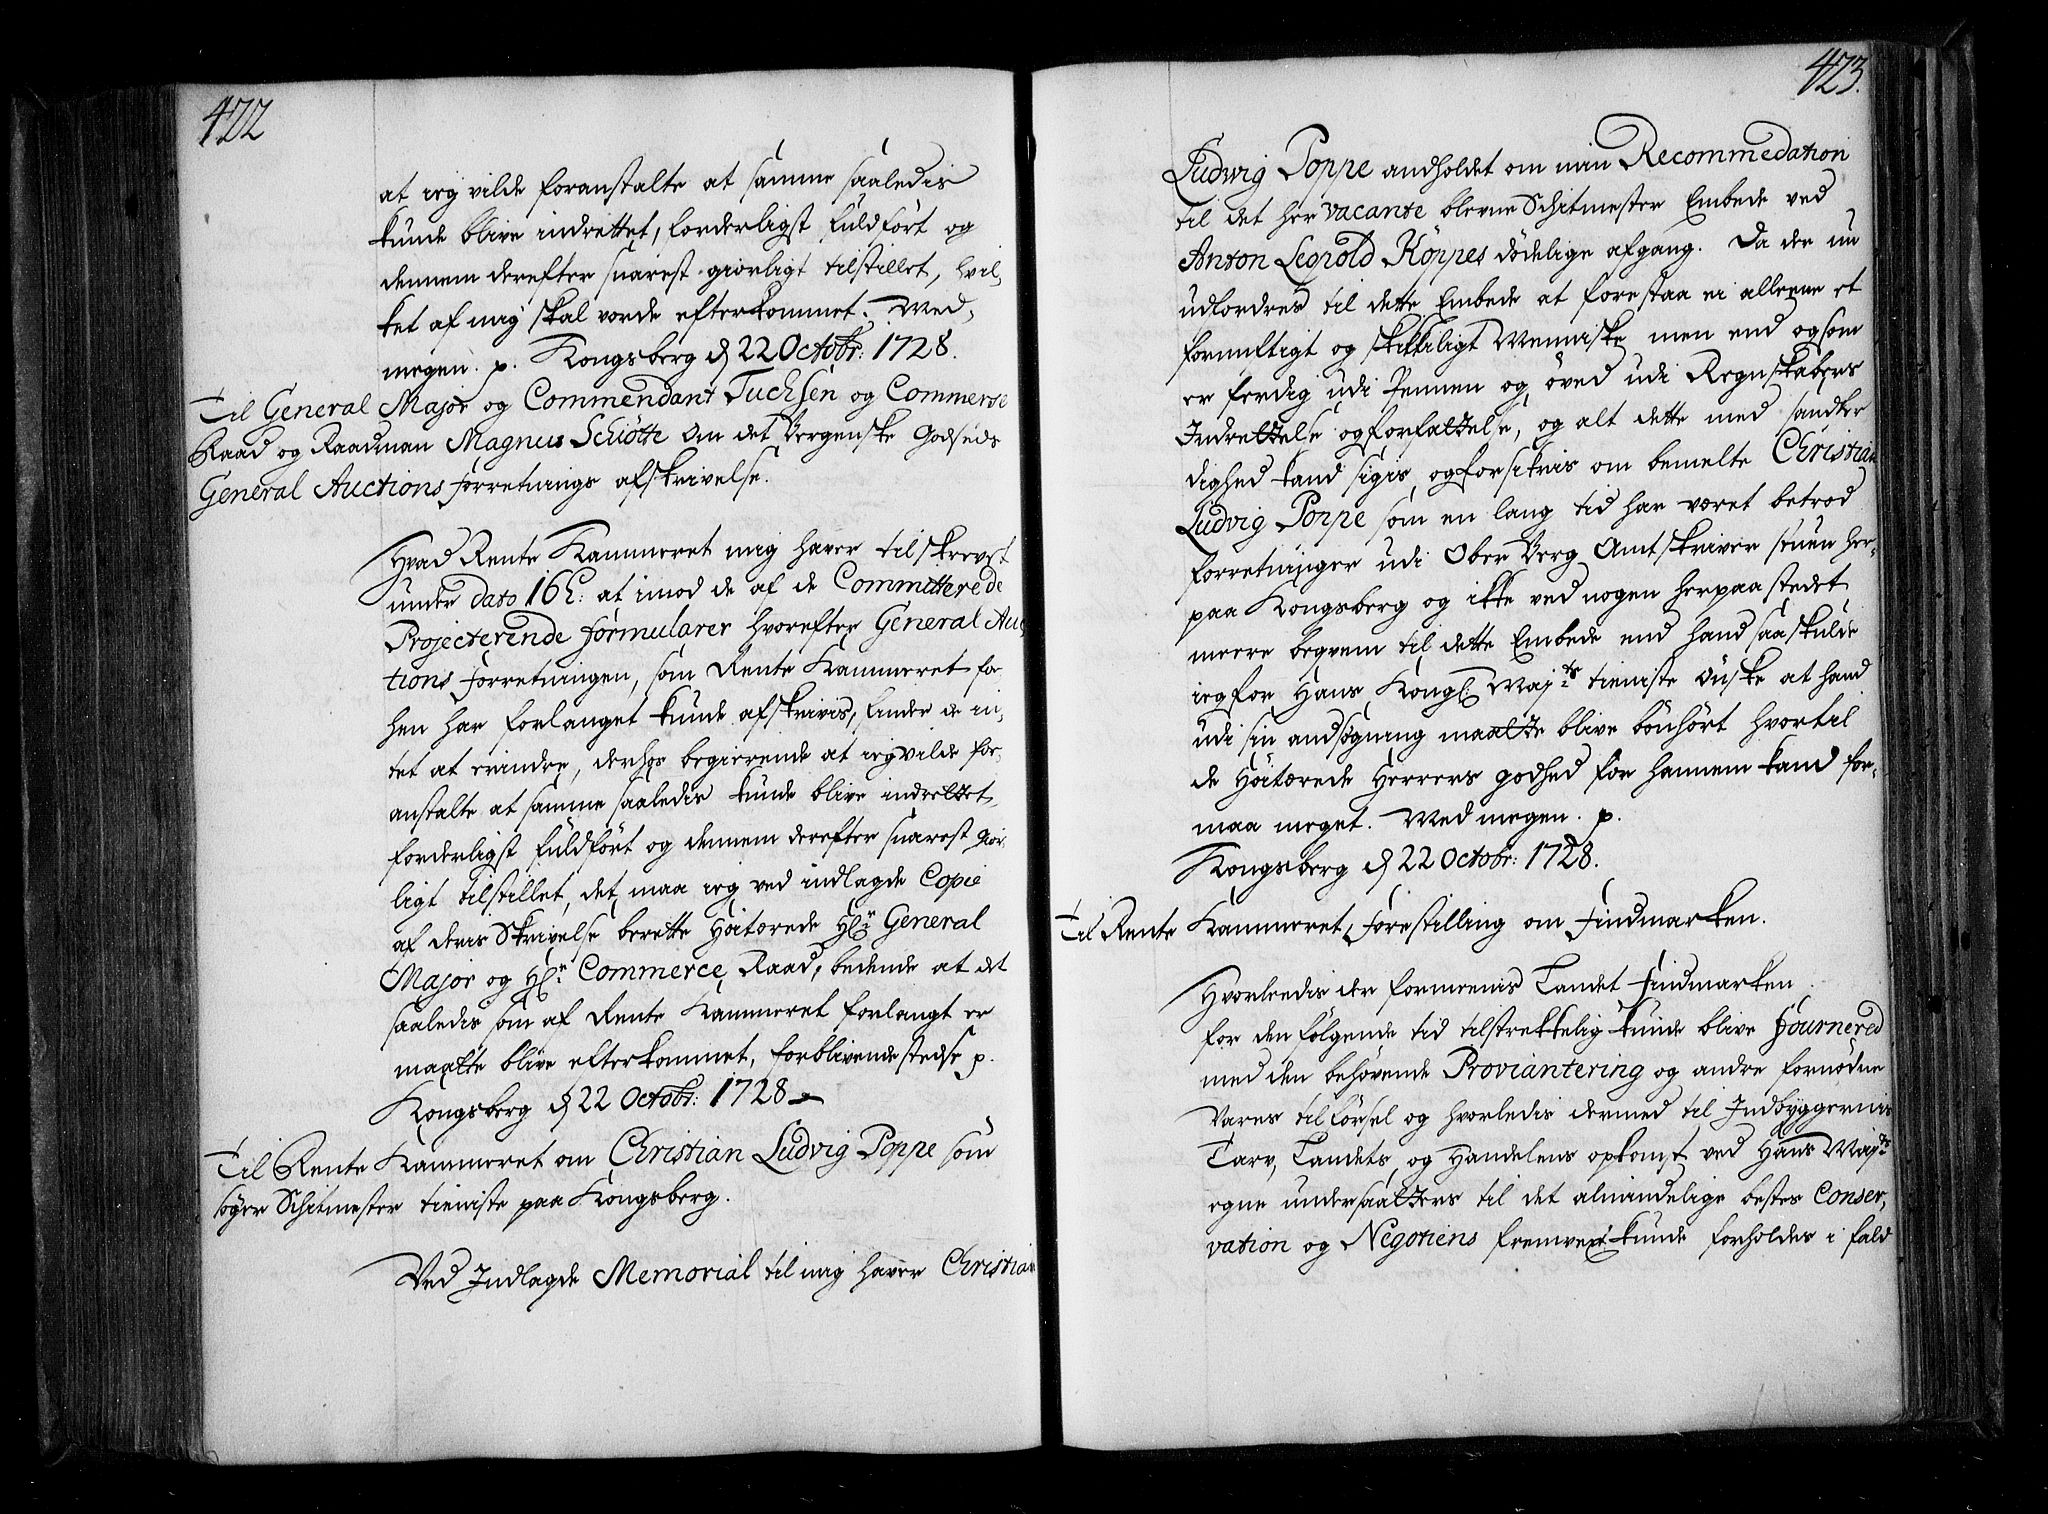 422
at ieg vilde foranstalte at samme saaledis
kunde blive indrettet, forderligst fuldfört og
dennem derefter snarest giörligt tilstillet, hvil-
ket af mig skal vorde efterkommet. Med
megen. p. Kongsberg d 22 Octobr: 1728.
Til General Major og Commendant Tuchsen og Commerse
Raad og Raadman Magnus Schiötte om det Bergenske Godseds
General Auctions forretnings afskrivelse.
Hvad Rente Kammeret mig haver tilskrevet
under dato 16 h: at imod de af de Committerede
Projecterende formularer hvorefter General Auc-
tions forretningen, som Rente Kammeret for
hen har forlanget kunde afskrivis, finder de in-
tet at erindre, derhos begierende at ieg vilde for-
anstalte at samme saaledis kunde blive indrettet,
forderligst fuldfört og dennem derefter snarest giör-
ligt tilstillet, det maa ieg ved indlagde Copie
af deris Skrivelse berette Höitærede Hr General
Major og Hr Commerce Raad, bedende at det
saaledis som af Rente Kammeret forlangt er
maatte blive efterkommet, forblivende stedse p.
Kongsberg d 22 Octobr: 1728
Til Rente Kammeret om Christian Ludvig Poppe som
söger Schitmester tieniste paa Kongsberg.
Ved Indlagde Memorial til mig haver Christian
423.
Ludwig Poppe andholdet om min Recommedation
til det her vacante blevne Schitmester Embede ved
Anton Legpold Köppes dödelige afgang. Da der nu
udfordres til dette Embede at forestaa ei alleene et
fornuftigt og skikkeligt Menniske men end og som
er ferdig udi Pennen og öved udi Regnskabers
Indrettelse og forfattelse, og alt dette med sandfer
dighed kand sigis og forsikris om bemelte Christian
Ludvig Poppe som en lang tid har været betrod
forretninger udi Ober Berg Amtskriver stuen her-
paa Kongsberg og ikke ved nogen her paa stedet
meere beqvem til dette Embede end hand saa skulde
ieg for Hans Kongl: Majts tieniste önske at hand
udi sin andsögning maatte blive bönhört hvortil
de Höitærede Herrers godhed for hannem kand for-
maa meget. Med megen. p.
Kongsberg d 22 Octobr: 1728.
Til Rente Kammeret, forestilling om Findmarken.
Hvorleedis der formeenis Landet Findmarken
for den fölgende tid tilstrekkelig kunde blive fournered
med den behövende Proviantering og andre fornödne
Vares tilförsel og hvorledis dermed til Indbyggernis
Tarv, Landets og Handelens opkomst ved Hans Majts
egne undersaatters til det almindelige bestes Conser-
vation og Negotiens fremvext kunde forholdes i fald